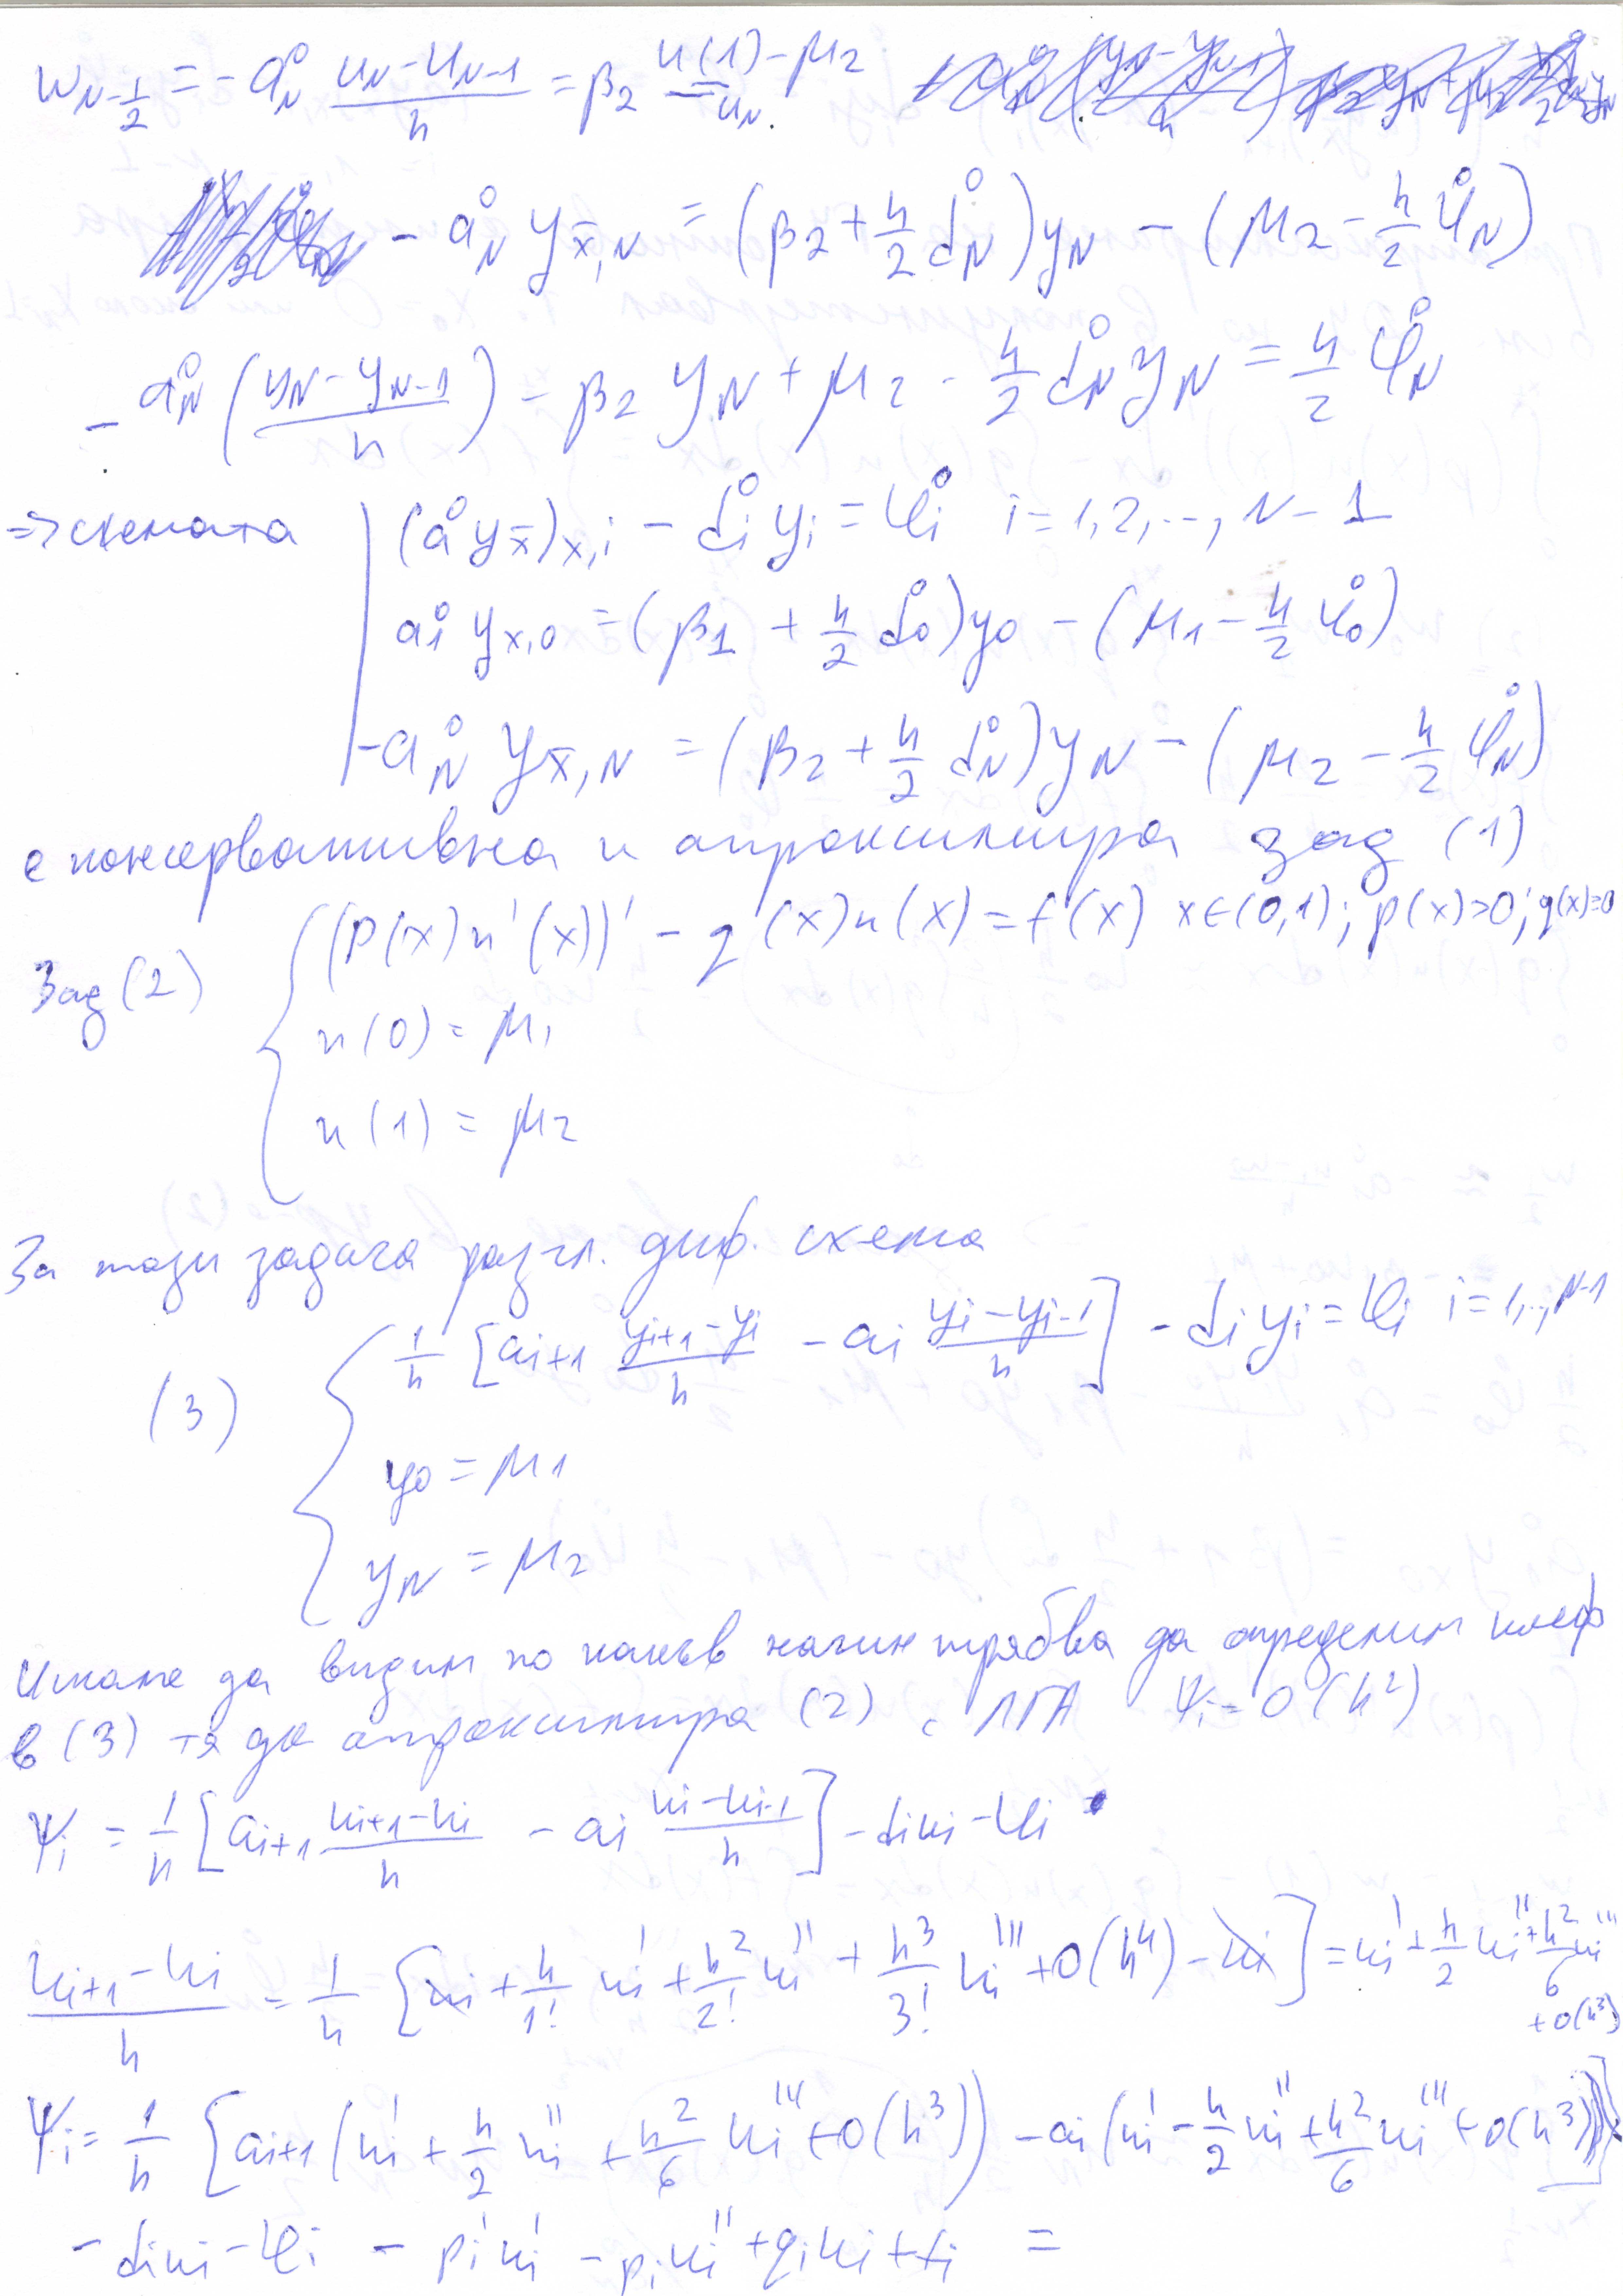 w_{N-\frac{1}{2}} = -a°_N \frac{u_N - u_{N-1}}{h} = β_2 \frac{u(1)}{u_N} - μ_2
- a°_N y_{\bar{x},N} = (β_2 + \frac{h}{2} d°_N) y_N - (μ_2 - \frac{h}{2} φ°_N)
- a°_N (\frac{y_N - y_{N-1}}{h}) - β_2 y_N + μ_2 - \frac{h}{2} d°_N y_N = \frac{h}{2} φ°_N
=> схемата
(a° y_{\bar{x}})_{x,i} - d°_i y_i = φ°_i i = 1, 2, ..., N-1
a°_1 y_{x,0} = (β_1 + \frac{h}{2} d°_0) y_0 - (μ_1 - \frac{h}{2} φ°_0)
-a°_N y_{\bar{x},N} = (β_2 + \frac{h}{2} d°_N) y_N - (μ_2 - \frac{h}{2} φ°_N)
е консервативна и апроксимира зад (1)
Зад (2) (p(x)u'(x))' - q(x)u(x) = f(x) x∈(0,1); p(x)>0; q(x)≥0
u(0) = μ_1
u(1) = μ_2
За тази задача разгл. диф. схема
(3) \frac{1}{h} [a_{i+1} \frac{y_{i+1} - y_i}{h} - a_i \frac{y_i - y_{i-1}}{h}] - d_i y_i = φ_i i = 1,..,N-1
y_0 = μ_1
y_N = μ_2
Искаме да видим по какъв начин трябва да определим коеф
в (3) тя да апроксимира (2) с ЛГА ψ_i = O(h^2)
ψ_i = \frac{1}{h} [a_{i+1} \frac{u_{i+1} - u_i}{h} - a_i \frac{u_i - u_{i-1}}{h}] - d_i u_i - φ_i
\frac{u_{i+1} - u_i}{h} = \frac{1}{h} [u_i + \frac{h}{1!} u_i' + \frac{h^2}{2!} u_i'' + \frac{h^3}{3!} u_i''' + O(h^4) - u_i] = u_i' + \frac{h}{2} u_i'' + \frac{h^2}{6} u_i''' + O(h^3)
ψ_i = \frac{1}{h} [a_{i+1} (u_i' + \frac{h}{2} u_i'' + \frac{h^2}{6} u_i''' + O(h^3)) - a_i (u_i' - \frac{h}{2} u_i'' + \frac{h^2}{6} u_i''' + O(h^3))]
- d_i u_i - φ_i - p_i' u_i' - p_i u_i'' + q_i u_i + f_i =